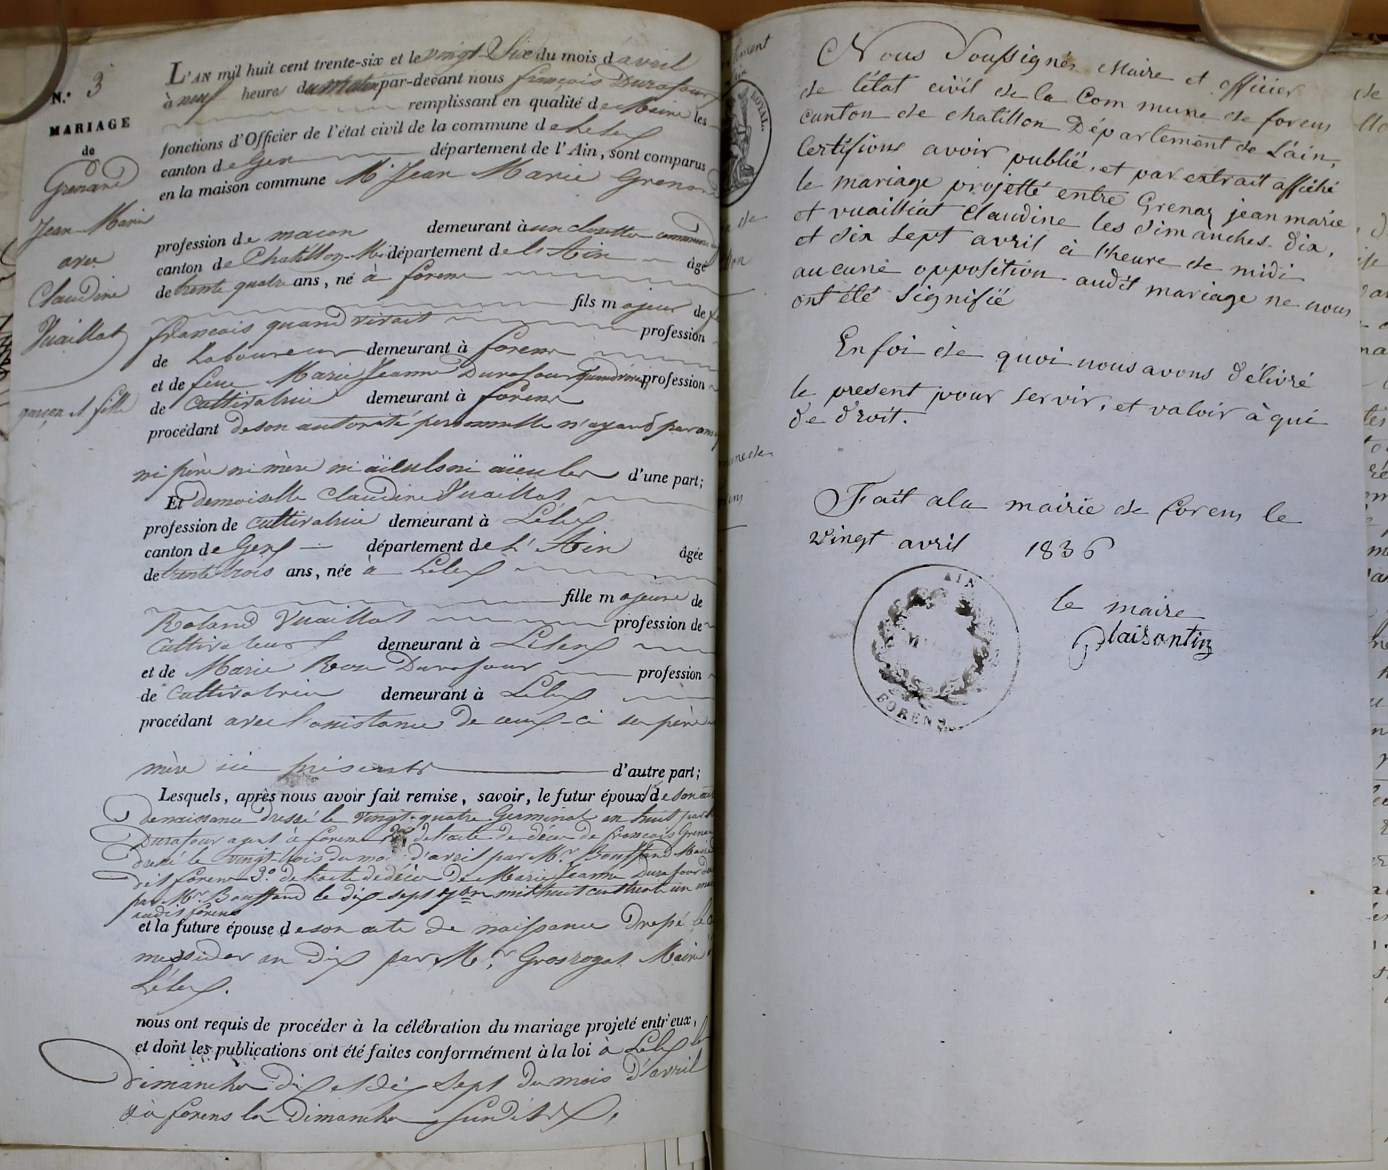 N.° 3
MARIAGE
de
Grenard
Jean Marie
avec
Claudine
Vuaillat
garçon et fille
L'AN mil huit cent trente-six et le vingt Six du mois d'avril
à neuf heure du Matin par-devant nous françois Durafour
remplissant en qualité de Maire les
fonctions d'Officier de l'état civil de la commune de Lélex
canton de Gex département de l'Ain, sont comparus
en la maison commune Mr Jean Marie Grenard
profession de macon demeurant à commune
canton de Chatillon Mi département de l'Ain âgé
de trente quatre ans, né à forens
fils majeur de
francois quand vivait profession
de Laboureur demeurant à forens
et de feue Marie Jeanne Durafour quand vivait profession
de Cultivatrice demeurant à forens
procédant de son autorité personnelle n'ayant
ni père ni mère ni aïeuls ni aïeules d'une part;
Et demoiselle Claudine Vuaillat
profession de cultivatrice demeurant à Lélex
canton de Gex département de L'Ain âgée
de trente trois ans, née à Lélex
fille majeure de
Roland Vuaillat profession de
Cultivateur demeurant à Lélex
et de Marie Durafour profession
de Cultivatrice demeurant à Lélex
procédant avec l'assistance de ceux-ci ses père
mère ici présents d'autre part;
Lesquels, après nous avoir fait remise, savoir, le futur époux de son
de naissance dressé le vingt-quatre Germinal an huit par
Durafour agent à forens de l'acte de décès de francois Grenard
dressé le vingt trois du mois d'avril par Mr Bouffand Maire
dit forens 3.° de l'acte de décès de Marie Jeanne Durafour
par Mr Bouffand le dix-sept mil huit cent trente un
audit forens
et la future épouse de son acte de naissance Dressé le
messidor an Dix par Mr Grosrogat Maire
Lélex.
nous ont requis de procéder à la célébration du mariage projeté entr'eux,
et dont les publications ont été faites conformément à la loi à Lélex les
dimanche dix et dix Sept du mois d'avril
& à forens les Dimanche susdits.
Nous Soussignés Maire et officier
de l'état civil de la Commune de forens
canton de chatillon Département de L'ain,
Certifions avoir publié, et par extrait affiché
le mariage projetté entre Grenaz jean marie
et vuailliat Claudine les dimanches dix,
et dix sept avril à l'heure de midi
aucune opposition audit mariage ne nous
ont été signifié
En foi de quoi nous avons délivré
le present pour servir, et valoir à qui
de droit.
Fait a la mairie de forens le
vingt avril 1836
le maire
AIN
FORENS